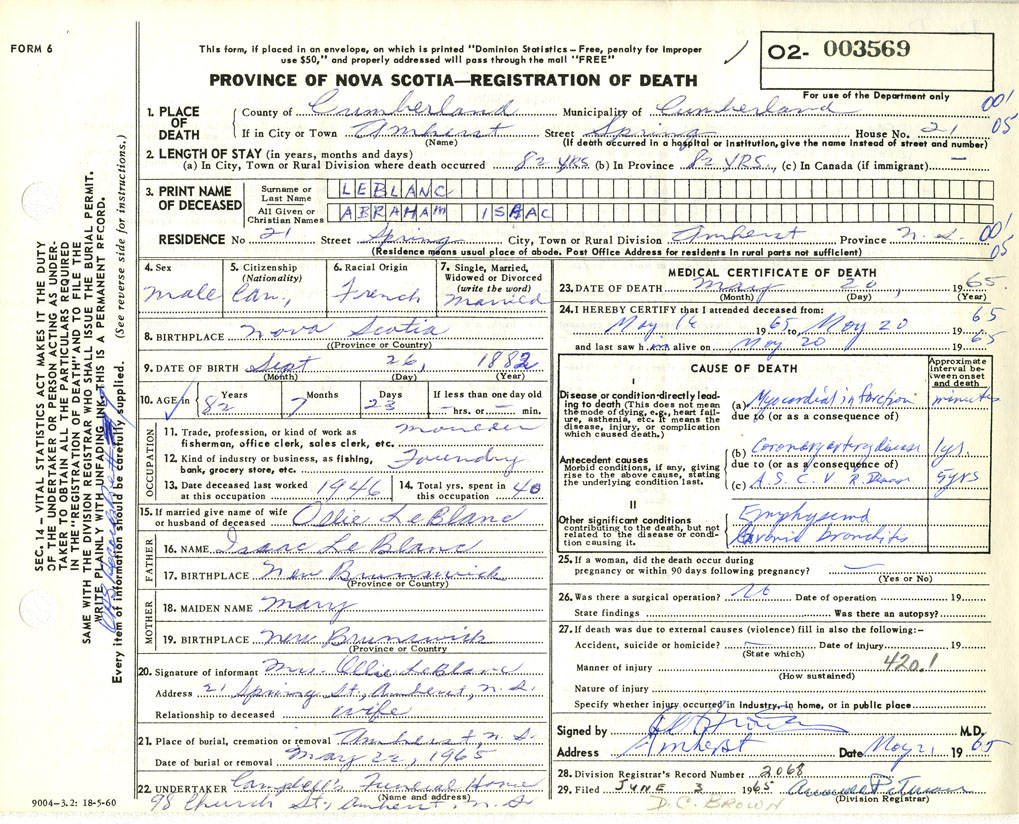 FORM 6
This form, if placed in an envelope, on which is printed "Dominion Statistics – Free, penalty for improper
use $50," and properly addressed will pass through the mail "FREE"
02- 003569
PROVINCE OF NOVA SCOTIA—REGISTRATION OF DEATH
For use of the Department only
001
05
1. PLACE OF DEATH County of Cumberland Municipality of Cumberland
If in City or Town Amherst Street Spring House No. 21
(Name) (If death occurred in a hospital or institution, give the name instead of street and number)
2. LENGTH OF STAY (in years, months and days)
(a) In City, Town or Rural Division where death occurred 82 yrs (b) In Province 82 yrs. (c) In Canada (if immigrant) —
3. PRINT NAME OF DECEASED Surname or Last Name LEBLANC
All Given or Christian Names ABRAHAM ISAAC
RESIDENCE No 21 Street Spring City, Town or Rural Division Amherst Province N.S. 001
05
(Residence means usual place of abode. Post Office Address for residents in rural parts not sufficient)
4. Sex male
5. Citizenship (Nationality) Can.
6. Racial Origin French
7. Single, Married, Widowed or Divorced (write the word) married
8. BIRTHPLACE Nova Scotia
((Province or Country)
9. DATE OF BIRTH Sept 26, 1882
(Month) (Day) (Year)
10. AGE in Years 82 Months 7 Days 23 If less than one day old – hrs. or – min.
OCCUPATION
11. Trade, profession, or kind of work as moulder
fisherman, office clerk, sales clerk, etc.
12. Kind of industry or business, as fishing, Foundry
bank, grocery store, etc.
13. Date deceased last worked at this occupation 1946
14. Total yrs. spent in this occupation 40
15. If married give name of wife or husband of deceased Ollie LeBlanc
FATHER
16. NAME Isaac LeBlanc
17. BIRTHPLACE New Brunswick
(Province or Country)
MOTHER
18. MAIDEN NAME Mary
19. BIRTHPLACE New Brunswick
(Province or Country)
20. Signature of informant Mrs. Ollie LeBlanc
Address 21 Spring St., Amherst, N.S.
Relationship to deceased wife
21. Place of burial, cremation or removal Amherst, N.S.
Date of burial or removal May 22, 1965
22. UNDERTAKER Campbell's Funeral Home
(Name and address)
98 Church St., Amherst, N.S.
9004-3.2: 18-5-60
MEDICAL CERTIFICATE OF DEATH
23. DATE OF DEATH May 20, 1965.
(Month) (Day) (Year)
24. I HEREBY CERTIFY that I attended deceased from:
May 16 1965 to May 20 1965
and last saw him alive on May 20 1965
CAUSE OF DEATH
Approximate interval between onset and death
I
Disease or condition directly leading to death (This does not mean the mode of dying, e.g., heart failure, asthenia, etc. It means the disease, injury, or complication which caused death.)
(a) Myocardial infarction minutes
due to (or as a consequence of)
Antecedent causes
Morbid conditions, if any, giving rise to the above cause, stating the underlying condition last.
(b) Coronary artery disease 1yr.
due to (or as a consequence of)
(c) A.S.C.V.R. Disease 5yrs
II
Other significant conditions
contributing to the death, but not related to the disease or condition causing it.
Emphysema
Chronic bronchitis
25. If a woman, did the death occur during
pregnancy or within 90 days following pregnancy? —
(Yes or No)
26. Was there a surgical operation? No Date of operation 19
State findings Was there an autopsy?
27. If death was due to external causes (violence) fill in also the following:–
Accident, suicide or homicide? Date of injury 19
(State which)
Manner of injury 420.1
(How sustained)
Nature of injury
Specify whether injury occurred in industry, in home, or in public place
Signed by M.D.
Address Amherst Date May 21 1965
28. Division Registrar's Record Number 2068
29. Filed JUNE 3 1965
(Division Registrar)
D.C. BROWN
SEC. 14 – VITAL STATISTICS ACT MAKES IT THE DUTY
OF THE UNDERTAKER OR PERSON ACTING AS UNDER-
TAKER TO OBTAIN ALL THE PARTICULARS REQUIRED
IN THE "REGISTRATION OF DEATH" AND TO FILE THE
SAME WITH THE DIVISION REGISTRAR WHO SHALL ISSUE THE BURIAL PERMIT.
WRITE PLAINLY WITH UNFADING INK. THIS IS A PERMANENT RECORD.
Every item of information should be carefully supplied. (See reverse side for instructions.)